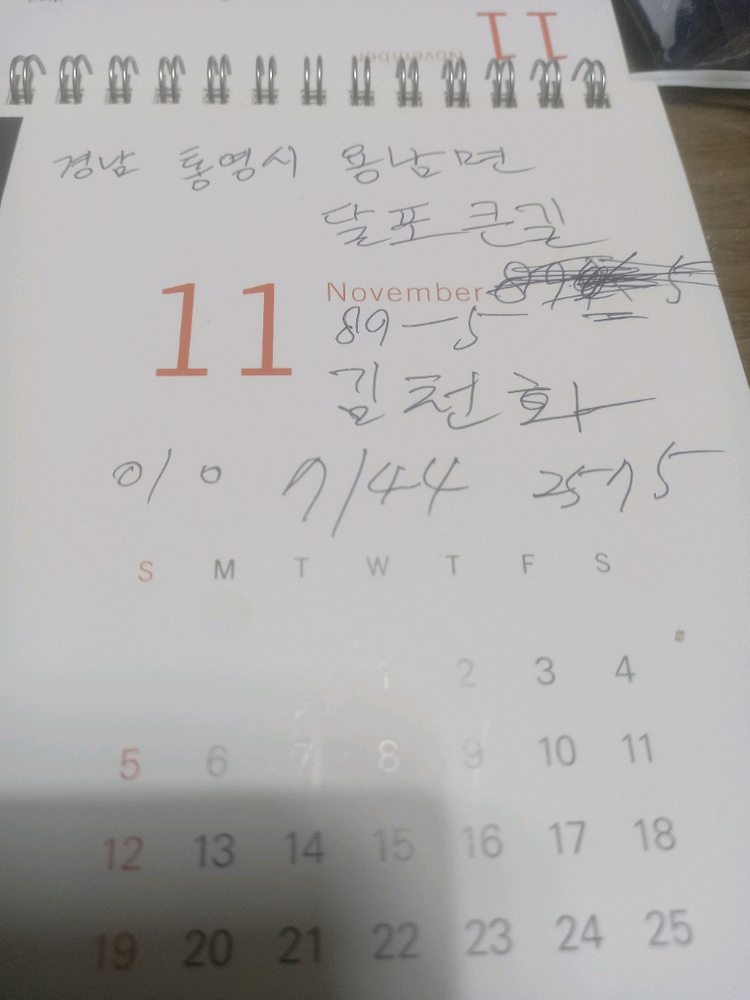 11
November
경남 통영시 용남면
달포 큰길
11 November
89-5
김천화
010 7144 2575
S M T W T F S
1 2 3 4
5 6 7 8 9 10 11
12 13 14 15 16 17 18
19 20 21 22 23 24 25